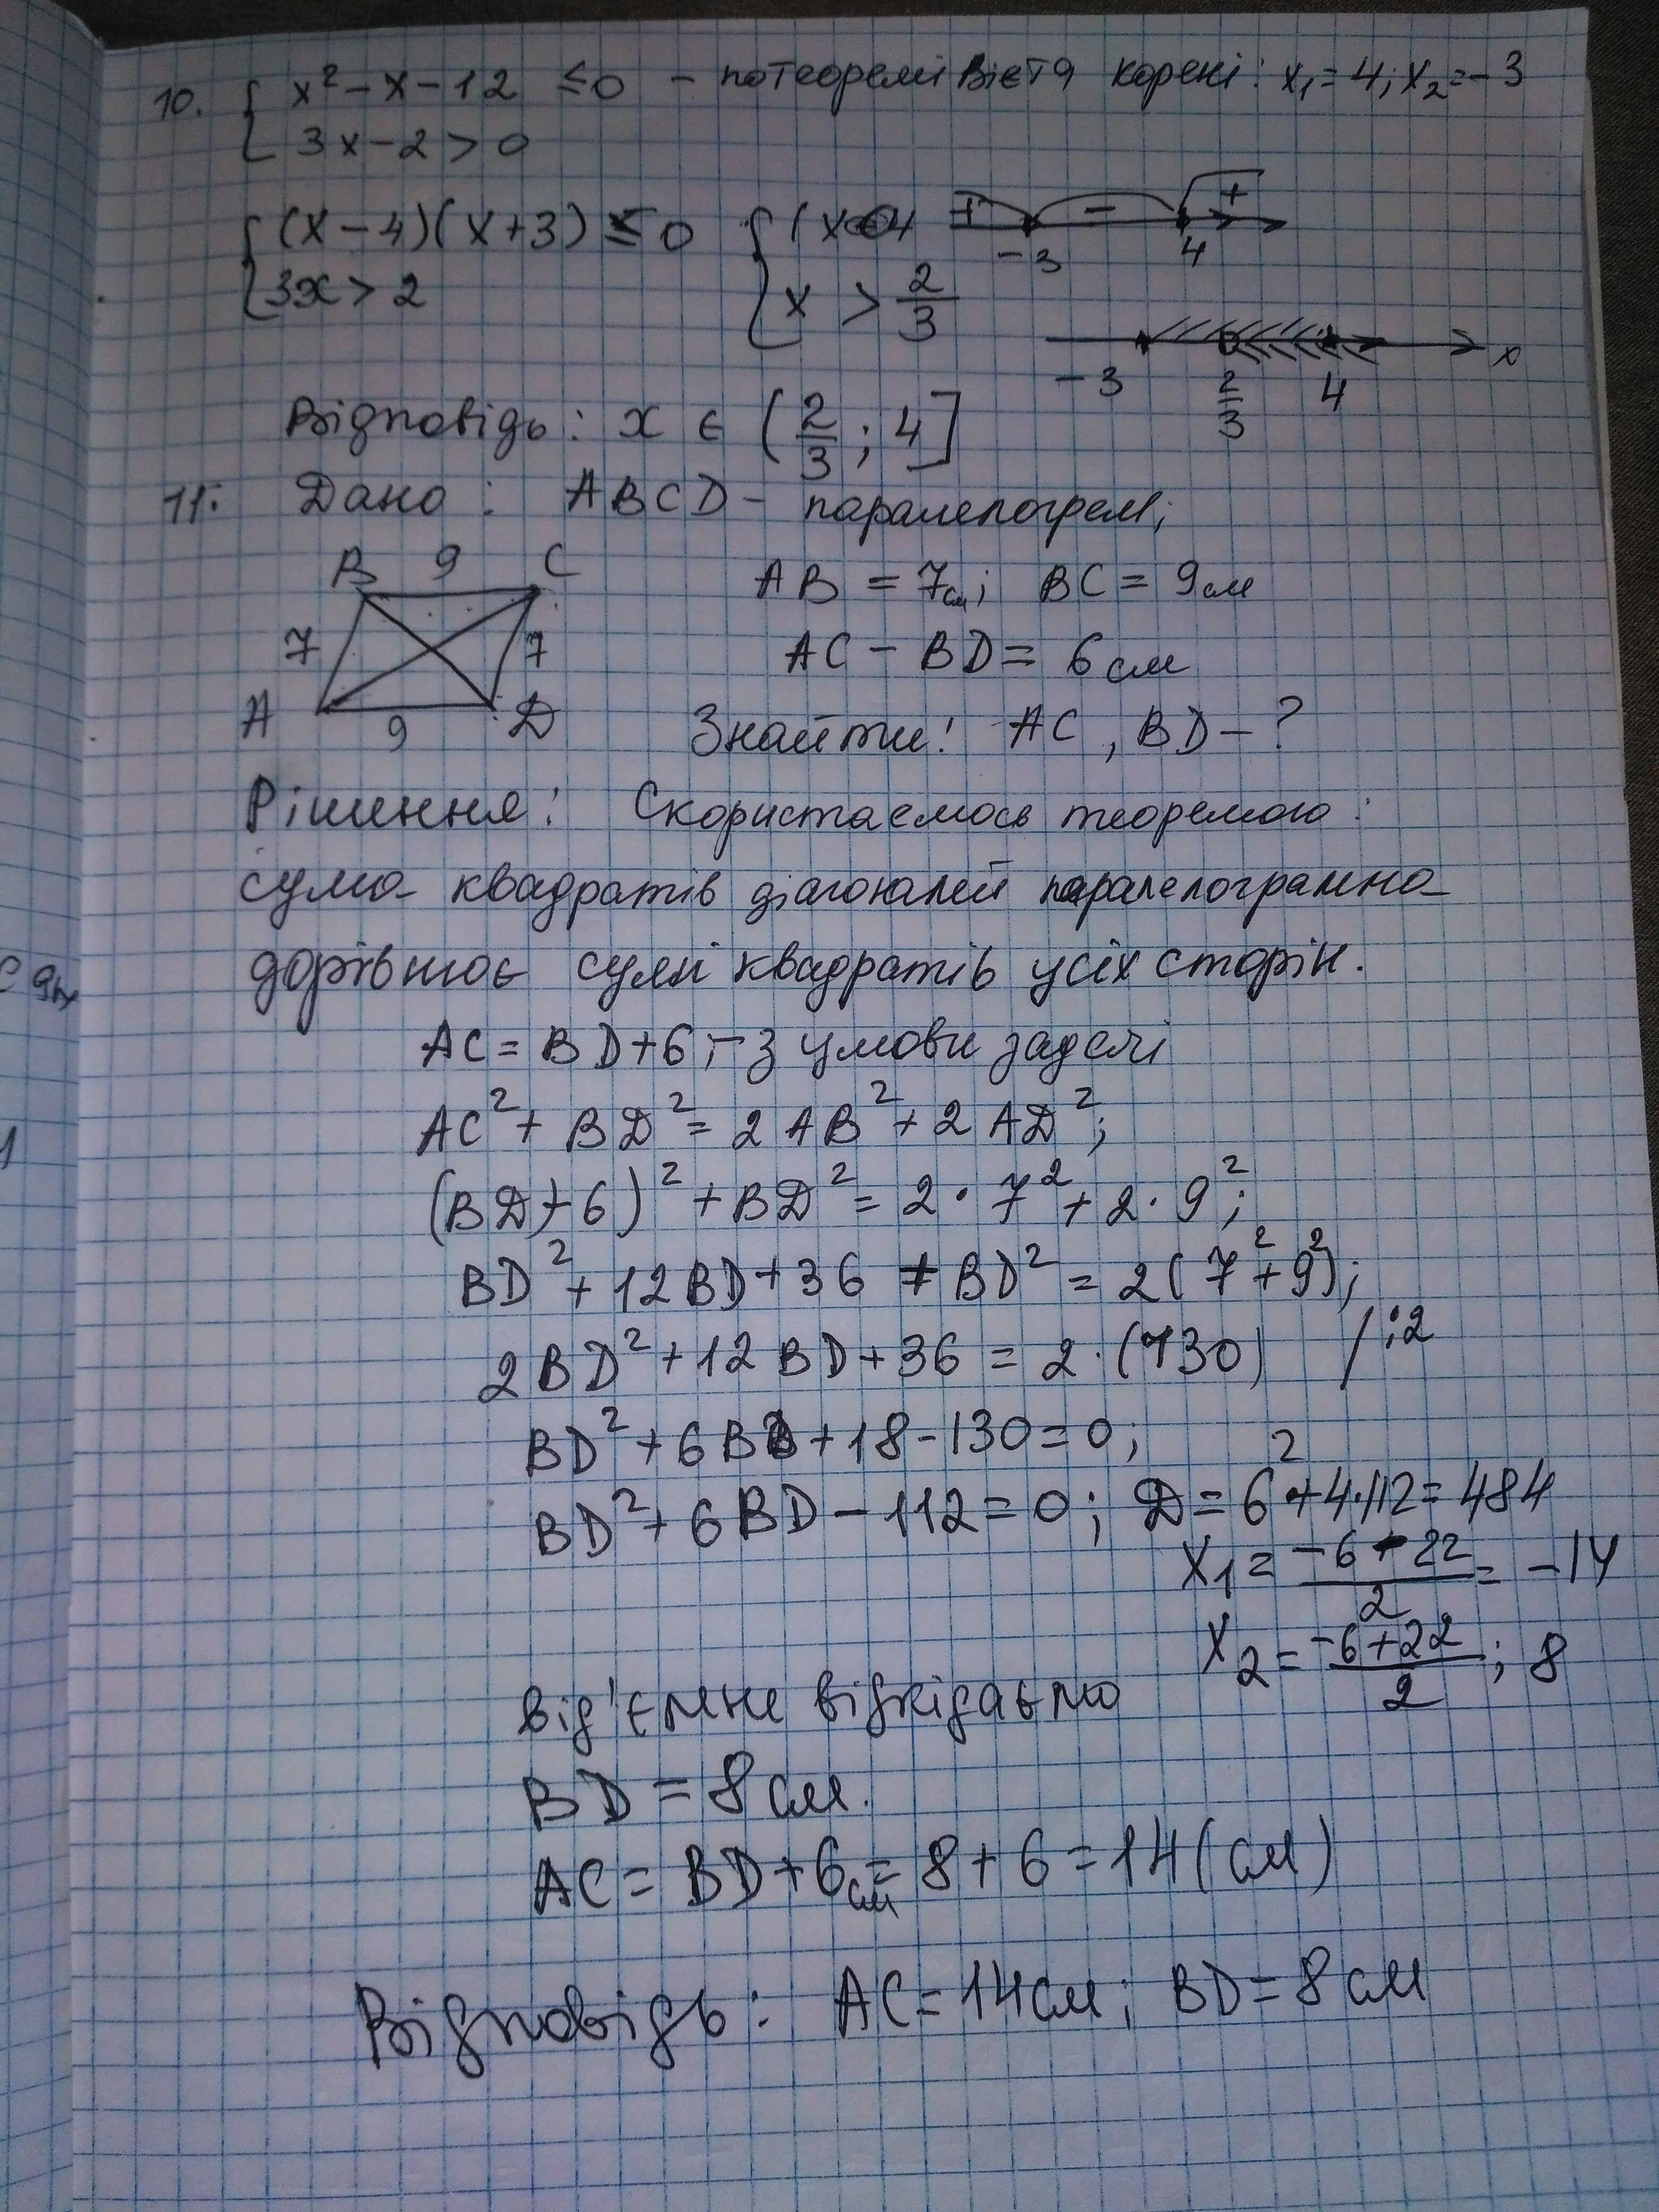 10. { x² - x - 12 ≤ 0 - по теоремі Вієта корені: x₁ = 4; x₂ = -3
3x - 2 > 0
{ (x - 4)(x + 3) ≤ 0 { (x 4 + - +
-3 4
{ 3x > 2 x > 2/3
x
-3 2/3 4
Відповідь: x ∈ (2/3; 4]
11. Дано: ABCD - паралелограм;
B 9 C
AB = 7см; BC = 9см
7 7
AC - BD = 6 см
A 9 D
Знайти: AC, BD - ?
Рішення: Скористаємось теоремою:
сума квадратів діагоналей паралелограма
дорівнює сумі квадратів усіх сторін.
AC = BD + 6; - з умови задачі
AC² + BD² = 2AB² + 2AD²;
(BD + 6)² + BD² = 2 · 7² + 2 · 9²;
BD² + 12BD + 36 + BD² = 2(7² + 9²);
2BD² + 12BD + 36 = 2 · (130) / :2
BD² + 6BD + 18 - 130 = 0;
BD² + 6BD - 112 = 0; D = 6² + 4·112 = 484
x₁ = (-6 - 22)/2 = -14
x₂ = (-6 + 22)/2; 8
від'ємне відкидаємо
BD = 8 см.
AC = BD + 6см = 8 + 6 = 14 (см)
Відповідь: AC = 14 см; BD = 8 см